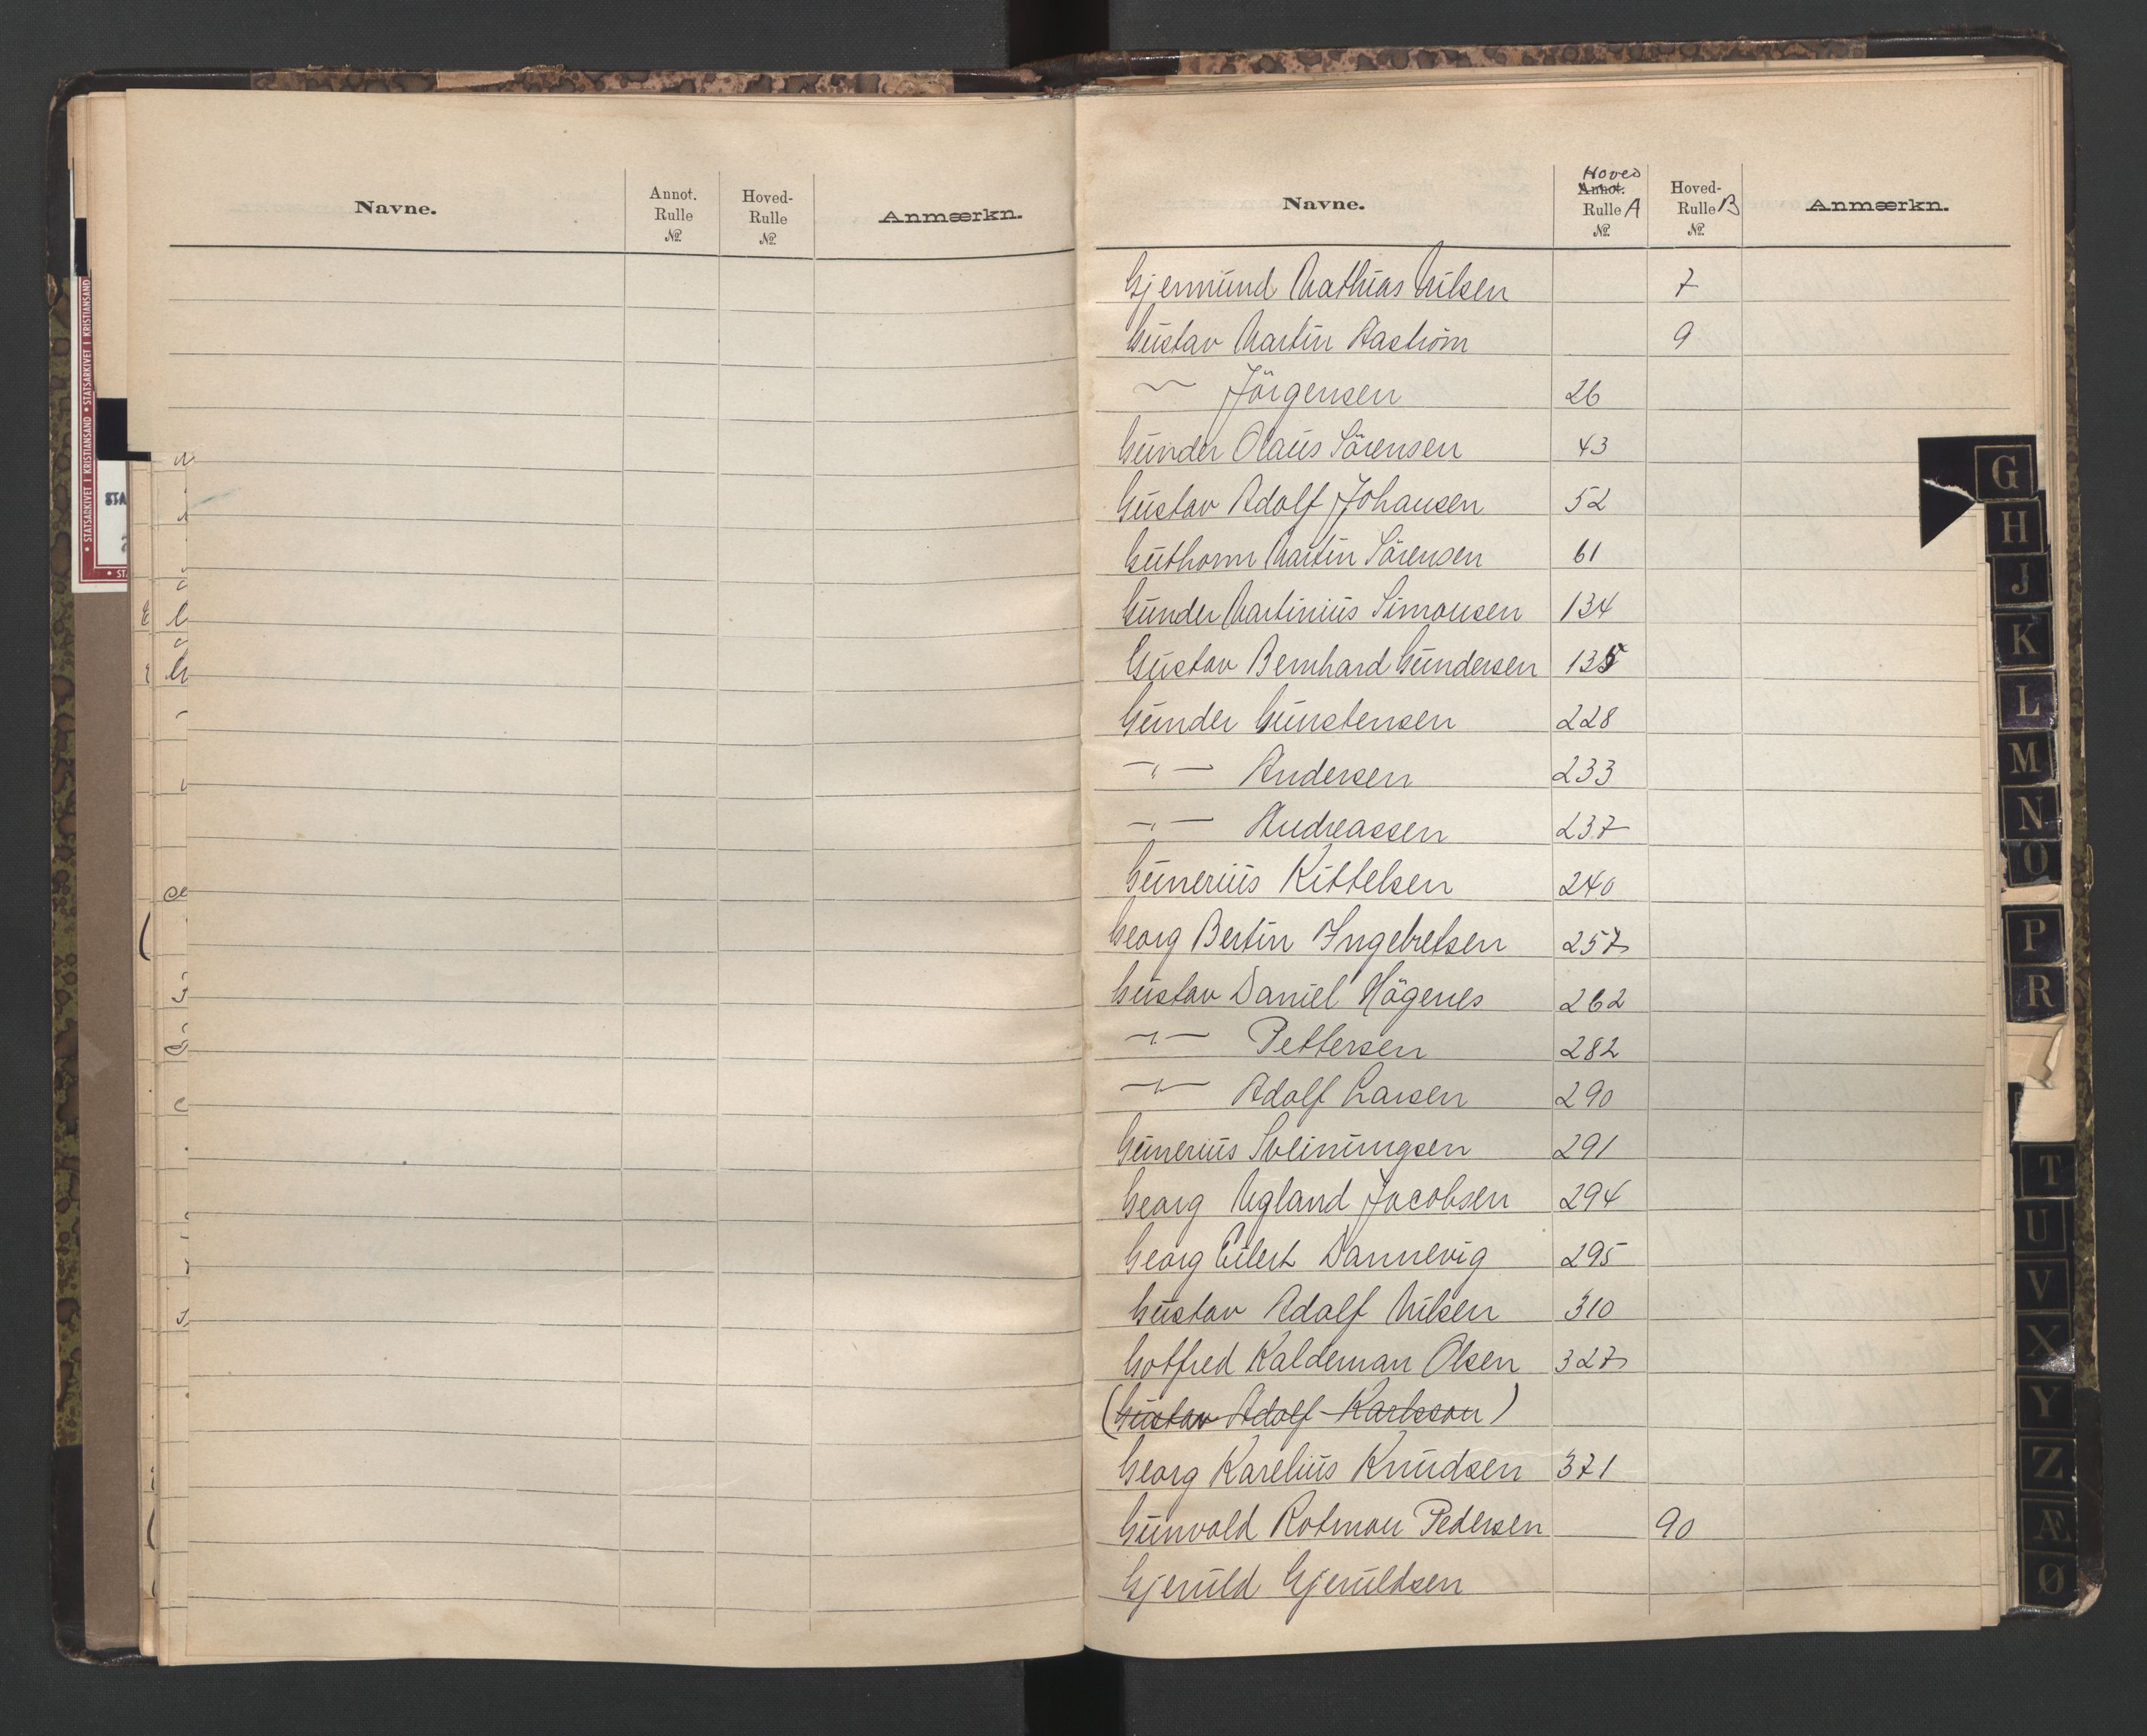 Navne.
Annot. Rulle №
Hoved- Rulle №
Anmærkn.
Navne.
Hoved Annot. Rulle A №
Hoved- Rulle B №
Anmærkn.
Gjermund Mathias Nilsen 7
Gustav Martin Aaström 9
— Jörgensen 26
Gunder Olaus Sörensen 43
Gustav Adolf Johansen 52
Guthorm Martin Sörensen 61
Gunder Martinius Simonsen 134
Gustav Bernhard Gundersen 135
Gunder Gunstensen 228
—„— Andersen 233
—„— Andreassen 237
Gunerius Kittelsen 240
Georg Bertin Ingebretsen 257
Gustav Daniel Högenes 262
—„— Pettersen 282
—„— Adolf Larsen 290
Gunerius Sveinungsen 291
Georg Ugland Jacobsen 294
Georg Eilert Dannevig 295
Gustav Adolf Nilsen 310
Gotfred Kaldeman Olsen 327
(Gustav Adolf Karlsson)
Georg Karelius Knudsen 371
Gunvald Rotman Pedersen 90
Gjeruld Gjeruldsen
G
H
J
K
L
M
N
O
P
R
T
U
V
X
Y
Z
Æ
Ø
• STATSARKIVET I KRISTIANSAND • STATSARKIVET I KRISTIANSAND